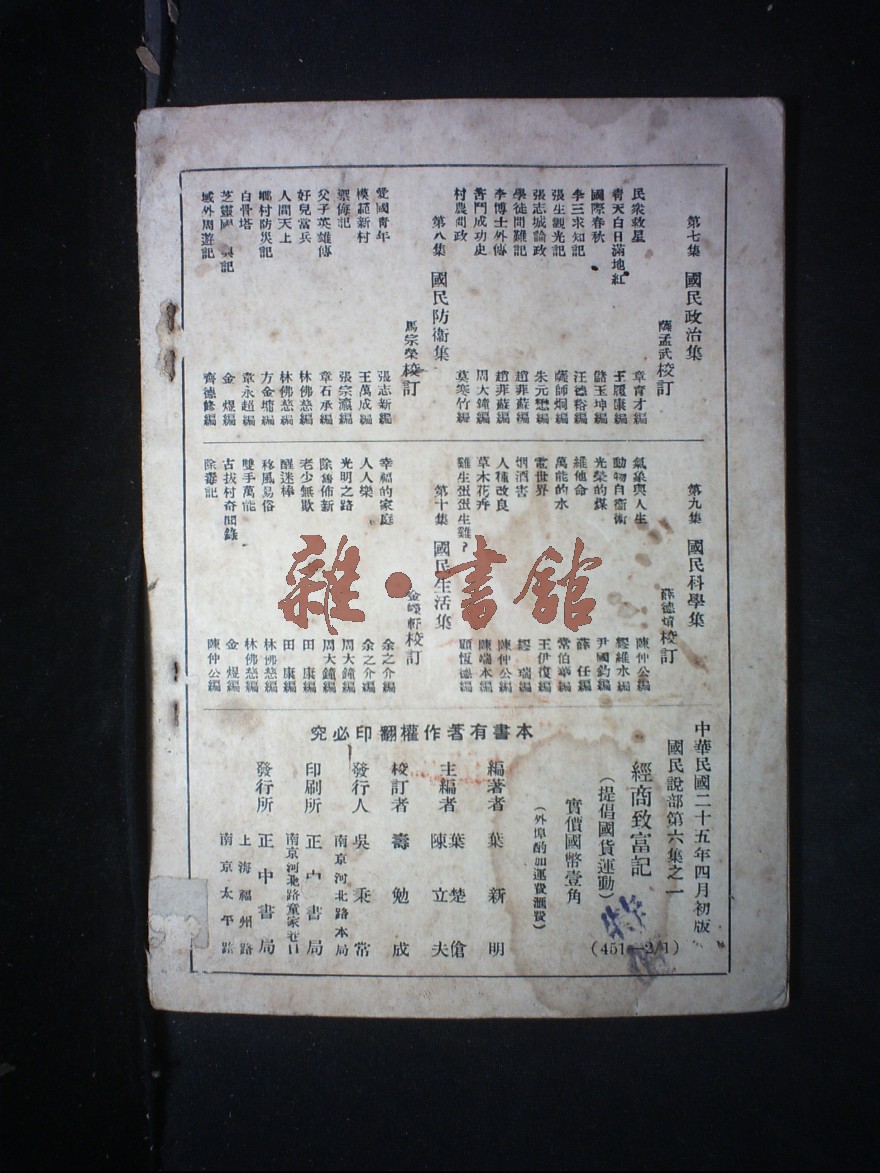 第七集 國民政治集
薩孟武校訂
民衆救星 章育才編
青天白日滿地紅 王履康編
國際春秋 儲玉坤編
李三求知記 汪德裕編
張生觀光記 薩師炯編
張志城論政 朱元懋編
學徒問難記 趙菲蘇編
李博士外傳 趙菲蘇編
奮鬥成功史 周大鐘編
村農問政 莫寒竹編
第八集 國民防衞集
馬宗榮校訂
愛國青年 張志新編
模範新村 王萬成編
禦侮記 張宗瀛編
父子英雄傳 章石承編
好兒當兵 林佛慈編
人間天上 林佛慈編
鄉村防災記 方金墉編
白骨塔 章永超編
芝靈國 興記 金煜編
域外周遊記 齊德修編
第九集 國民科學集
薛德焴校訂
氣象與人生 陳仲公編
動物自衞術 繆維水編
光榮的煤 尹國鈞編
維他命 薛任編
萬能的水 常伯華編
電世界 王伊復編
烟酒害 繆瑞編
人種改良 陳仲公編
草木花卉 陳端本編
雞生蛋蛋生雞? 顧恆德編
第十集 國民生活集
金嶸軒校訂
幸福的家庭 余之介編
人人樂 余之介編
光明之路 周大鐘編
除舊佈新 周大鐘編
老少無欺 田康編
醒迷棒 田康編
移風易俗 林佛慈編
雙手萬能 林佛慈編
古拔村奇聞錄 金煜編
除毒記 陳仲公編
中華民國二十五年四月初版
國民說部第六集之一
經商致富記
(提倡國貨運動)
(451—2/1)
實價國幣壹角
(外埠酌加運費滙費)
本書有著作權翻印必究
編著者 葉新明
主編者 葉楚傖 陳立夫
校訂者 壽勉成
發行人 吳秉常
南京河北路本局
印刷所 正中書局
南京河北路童家巷口
發行所 正中書局
上海福州路
南京太平路
雜·書館